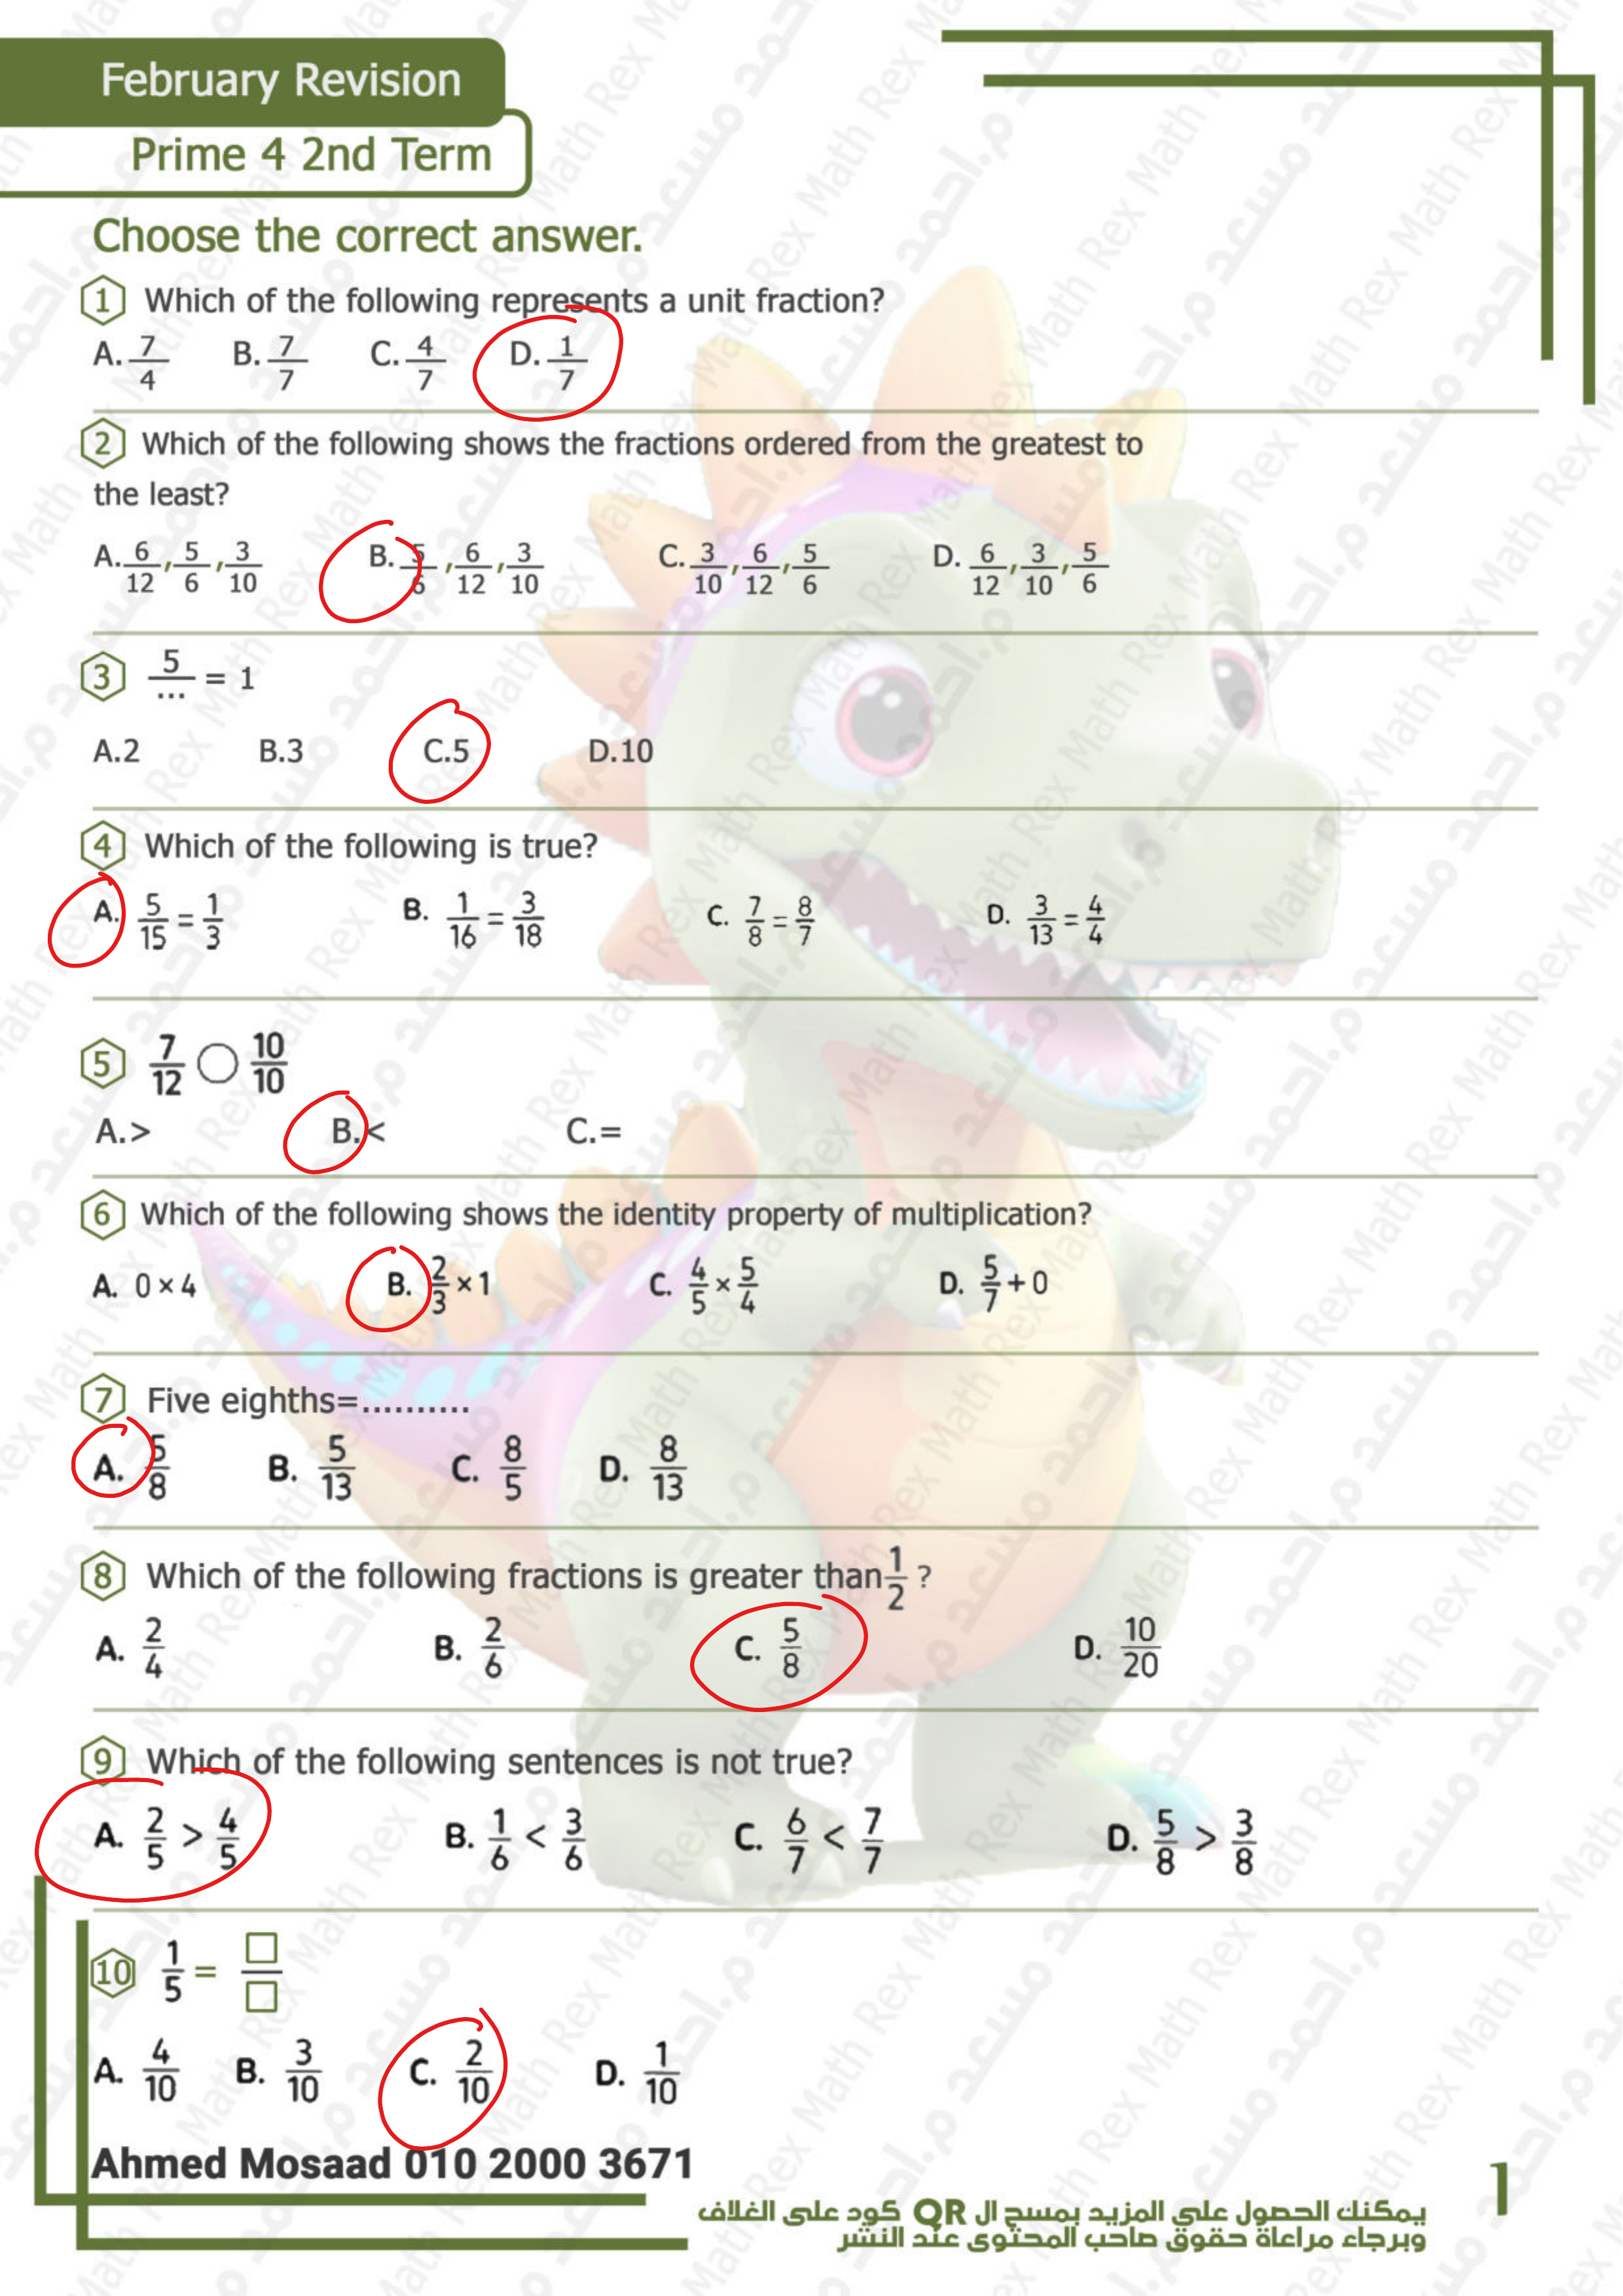 February Revision
Prime 4 2nd Term
Choose the correct answer.
1 Which of the following represents a unit fraction?
A. 7/4 B. 7/7 C. 4/7 D. 1/7
2 Which of the following shows the fractions ordered from the greatest to
the least?
A. 6/12, 5/6, 3/10 B. 5/6, 6/12, 3/10 C. 3/10, 6/12, 5/6 D. 6/12, 3/10, 5/6
3 5/... = 1
A.2 B.3 C.5 D.10
4 Which of the following is true?
A. 5/15 = 1/3 B. 1/16 = 3/18 C. 7/8 = 8/7 D. 3/13 = 4/4
5 7/12 ○ 10/10
A.> B.< C.=
6 Which of the following shows the identity property of multiplication?
A. 0 × 4 B. 2/3 × 1 C. 4/5 × 5/4 D. 5/7 + 0
7 Five eighths=..........
A. 5/8 B. 5/13 C. 8/5 D. 8/13
8 Which of the following fractions is greater than 1/2 ?
A. 2/4 B. 2/6 C. 5/8 D. 10/20
9 Which of the following sentences is not true?
A. 2/5 > 4/5 B. 1/6 < 3/6 C. 6/7 < 7/7 D. 5/8 > 3/8
10 1/5 = □/□
A. 4/10 B. 3/10 C. 2/10 D. 1/10
Ahmed Mosaad 010 2000 3671
يمكنك الحصول على المزيد بمسح ال QR كود على الغلاف
وبرجاء مراعاة حقوق صاحب المحتوى عند النشر
1
Math Rex م.احمد مسعد